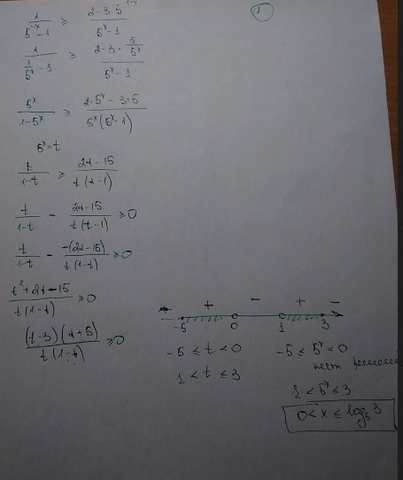 1/(5^-x - 1) ≥ (2 - 3·5^1-x)/(5^x - 1)
1/(1/5^x - 1) ≥ (2 - 3·5/5^x)/(5^x - 1)
5^x/(1-5^x) ≥ (2·5^x - 3·5)/(5^x(5^x-1))
5^x = t
t/(1-t) ≥ (2t - 15)/(t(t-1))
t/(1-t) - (2t-15)/(t(t-1)) ≥ 0
t/(1-t) - -(2t-15)/(t(1-t)) ≥ 0
(t²+2t-15)/(t(1-t)) ≥ 0
(t-3)(t+5)/(t(1-t)) ≥ 0
- + - + -
-5 0 1 3
-5 ≤ t < 0 -5 ≤ 5^x < 0
нет решений
1 < t ≤ 3 1 < 5^x ≤ 3
0 < x ≤ log₅3